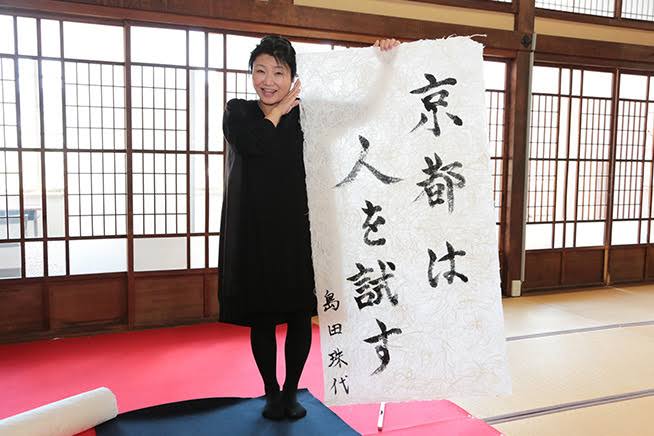 京都は
人を試す
島田珠代